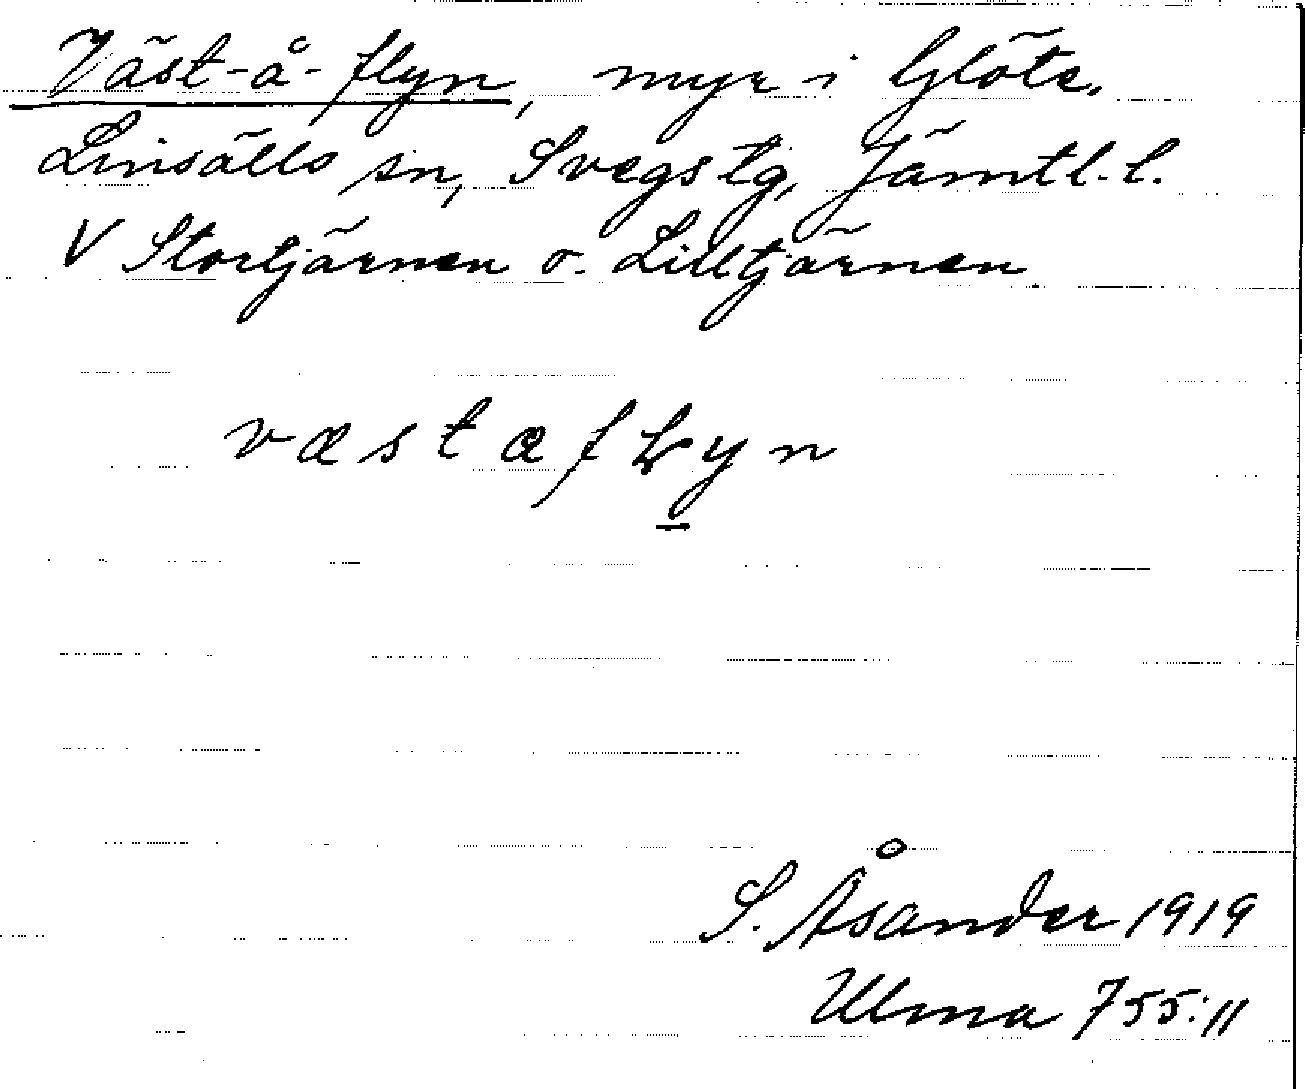 Väst-å-flyn, myr i Glöte,
Linsälls sn, Svegs tg, Jämtl. l.
V Stortjärnen o. Lilltjärnen
væstæfLyn
S. Åsander 1919
Ulma 755:11